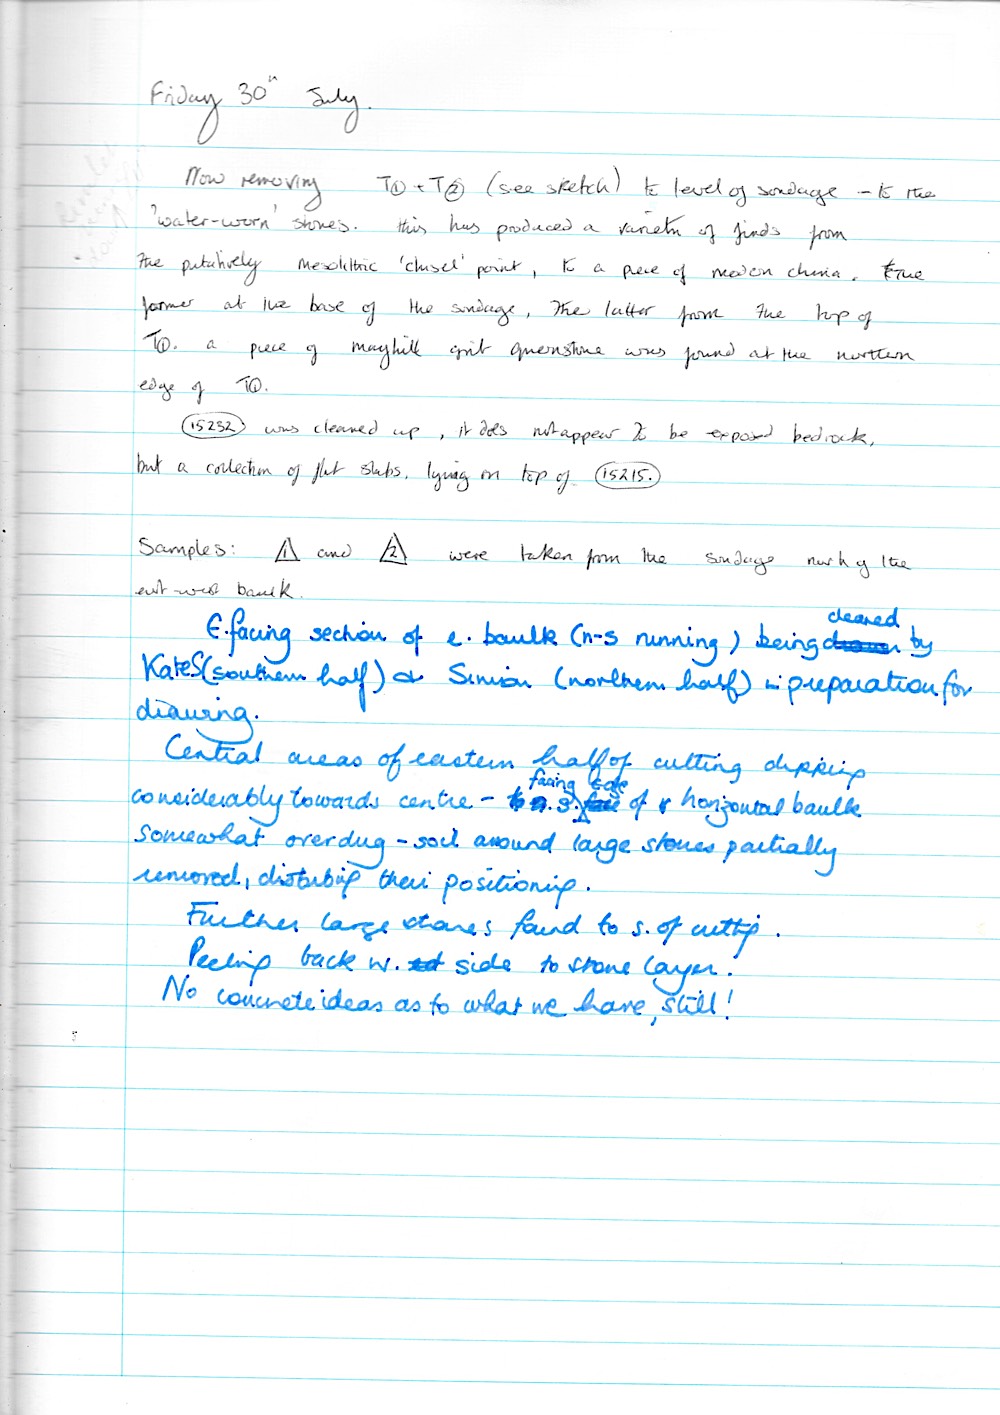 Friday 30th July.
Now removing T① + T② (see sketch) to level of sondage – to the
'water-worn' stones. this has produced a variety of finds from
the putatively mesolithic 'chisel' point, to a piece of modern china. the
former at the base of the sondage, the latter from the top of
T①. a piece of mayhill grit quernstone was found at the northern
edge of T①.
15232 was cleaned up, it does not appear to be exposed bedrock,
but a collection of flat slabs, lying on top of 15215.
Samples: 1 and 2 were taken from the sondage north of the
east-west baulk.
E. facing section of e. baulk (n-s running) being cleaned by
Kate S (southern half) & Simon (northern half) in preparation for
drawing.
Central areas of eastern half of cutting dipping
considerably towards centre – s. facing edge of horizontal baulk
somewhat overdug – soil around large stones partially
removed, disturbing their positioning.
Further large stones found to s. of cutting.
Peeling back w. side to stone layer.
No concrete ideas as to what we have, still!